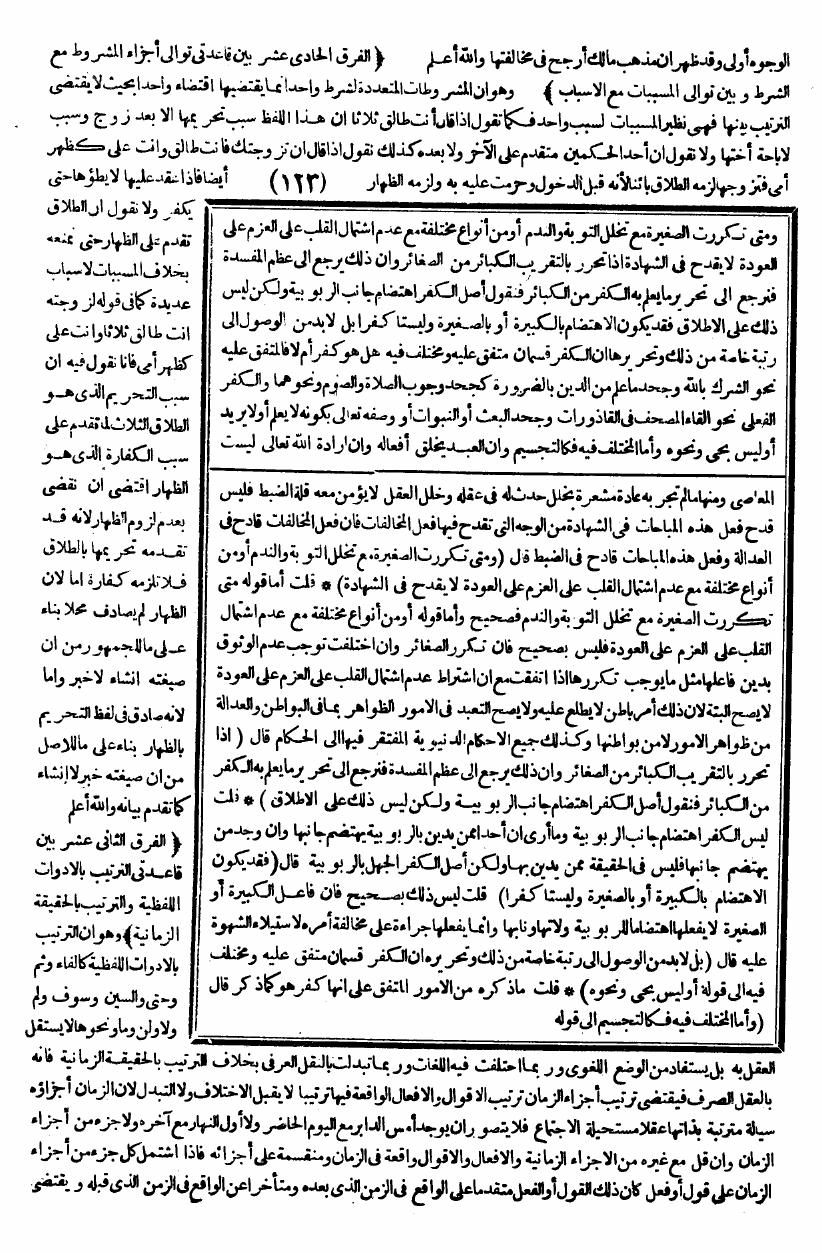 الوجوه أولى وقد ظهر ان مذهب مالك أرجح فى مخالفتها والله أعلم ﴿ الفرق الحادى عشر بين قاعدتى توالى أجزاء المشروط مع
الشرط و بين توالى المسببات مع الاسباب ﴾ وهو ان المشروطات المتعددة لشرط واحد انما يقتضيها اقتضاء واحدا بحيث لا يقتضى
الترتيب بينها فهى نظير المسببات لسبب واحد فكما نقول اذا قال أنت طالق ثلاثا ان هذا اللفظ سبب تحريمها الا بعد زوج وسبب
لاباحة أختها ولا نقول ان أحد الحكمين متقدم على الآخر ولا بعده كذلك نقول اذا قال ان تزوجتك فانت طالق وانت على كظهر
أمى فتزوجها لزمه الطلاق بائنا لأنه قبل الدخول وحرمت عليه به ولزمه الظهار (١٢٣) أيضا فاذا عقد عليها لا يطؤها حتى
يكفر ولا نقول ان الطلاق
تقدم على الظهار حتى يمنعه
بخلاف المسببات لاسباب
عديدة كما فى قوله لزوجته
انت طالق ثلاثا وانت على
كظهر أمى فانا نقول فيه ان
سبب التحريم الذى هو
الطلاق الثلاث لما تقدم على
سبب الكفارة الذى هو
الظهار اقتضى ان نقضى
بعدم لزوم الظهار لانه قد
تقدمه تحريمها بالطلاق
فلا تلزمه كفارة اما لان
الظهار لم يصادف محلا بناء
على ما للجمهور من ان
صيغته انشاء لا خبر واما
لانه صادق فى لفظ التحريم
بالظهار بناء على ما للاصل
من ان صيغته خبر لا إنشاء
كما تقدم بيانه والله أعلم
﴿ الفرق الثانى عشر بين
قاعدتى الترتيب بالادوات
اللفظية والترتيب بالحقيقة
الزمانية﴾ وهو ان الترتيب
بالادوات اللفظية كالفاء وثم
وحتى والسين وسوف ولم
ولا ولن وما ونحوها لا يستقل
ومتى تكررت الصغيرة مع تخلل التوبة والندم أو من أنواع مختلفة مع عدم اشتمال القلب على العزم على
العودة لا يقدح فى الشهادة اذا تحرر بالتقريب الكبائر من الصغائر وان ذلك يرجع الى عظم المفسدة
فنرجع الى تحرير ما يعلم به الكفر من الكبائر فنقول أصل الكفر اهتضام جانب الربوبية ولكن ليس
ذلك على الاطلاق فقد يكون الاهتضام بالكبيرة أو بالصغيرة وليستا كفرا بل لا بد من الوصول الى
رتبة خاصة من ذلك وتحريرها ان الكفر قسمان متفق عليه ومختلف فيه هل هو كفر أم لا فالمتفق عليه
نحو الشرك بالله وجحد ما علم من الدين بالضرورة كجحد وجوب الصلاة والصوم ونحوهما والكفر
الفعلى نحو القاء المصحف فى القاذورات وجحد البعث أو النبوات أو وصفه تعالى بكونه لا يعلم أو لا يريد
أو ليس بحى ونحوه وأما المختلف فيه فكالتجسيم وان العبد يخلق أفعاله وان ارادة الله تعالى ليست
المعاصى ومنها ما لم تجر به عادة مشعرة بخلل حدث له فى عقله وخلل العقل لا يؤمن معه قلة الضبط فليس
قدح فعل هذه المباحات فى الشهادة من الوجه التى تقدح فيها فعل المخالفات فان فعل المخالفات قادح فى
العدالة وفعل هذه المباحات قادح فى الضبط قال (ومتى تكررت الصغيرة مع تخلل التوبة والندم أو من
أنواع مختلفة مع عدم اشتمال القلب على العزم على العودة لا يقدح فى الشهادة) * قلت أما قوله متى
تكررت الصغيرة مع تخلل التوبة والندم فصحيح وأما قوله أو من أنواع مختلفة مع عدم اشتمال
القلب على العزم على العودة فليس بصحيح فان تكرر الصغائر وان اختلفت توجب عدم الوثوق
بدين فاعلها مثل ما يوجب تكررها اذا اتفقت مع ان اشتراط عدم اشتمال القلب على العزم على العودة
لا يصح البتة لان ذلك أمر باطن لا يطلع عليه ولا يصح التعبد فى الامور الظواهر بما فى البواطن والعدالة
من ظواهر الامور لا من بواطنها وكذلك جميع الاحكام الدنيوية المفتقر فيها الى الحكام قال (اذا
تحرر بالتقريب الكبائر من الصغائر وان ذلك يرجع الى عظم المفسدة فنرجع الى تحرير ما يعلم به الكفر
من الكبائر فنقول أصل الكفر اهتضام جانب الربوبية ولكن ليس ذلك على الاطلاق) * قلت
ليس الكفر اهتضام جانب الربوبية وما أرى ان أحدا ممن يدين بالربوبية يهتضم جانبها وان وجد من
يهتضم جانبها فليس فى الحقيقة ممن يدين بها ولكن أصل الكفر الجهل بالربوبية قال (فقد يكون
الاهتضام بالكبيرة أو بالصغيرة وليستا كفرا) قلت ليس ذلك بصحيح فان فاعل الكبيرة أو
الصغيرة لا يفعلها اهتضاما للربوبية ولا تهاونا بها وانما يفعلها جراءة على مخالفة أمره لاستيلاء الشهوة
عليه قال (بل لا بد من الوصول الى رتبة خاصة من ذلك وتحريره ان الكفر قسمان متفق عليه ومختلف
فيه الى قوله أو ليس بحى ونحوه) * قلت ما ذكره من الامور المتفق على انها كفر هو كما ذكر قال
(وأما المختلف فيه فكالتجسيم الى قوله
العقل به بل يستفاد من الوضع اللغوى وربما اختلفت فيه اللغات وربما تبدلت بالنقل العرفى بخلاف الترتيب بالحقيقة الزمانية فانه
بالعقل الصرف فيقتضى ترتيب أجزاء الزمان ترتيب الاقوال والافعال الواقعة فيها ترتيبا لا يقبل الاختلاف ولا التبدل لان الزمان أجزاؤه
سيالة مترتبة بذاتها عقلا مستحيلة الاجتماع فلا يتصور ان يوجد أمس الدابر مع اليوم الحاضر ولا أول النهار مع آخره ولا جزء من أجزاء
الزمان وان قل مع غيره من الاجزاء الزمانية والافعال والاقوال واقعة فى الزمان ومنقسمة على أجزائه فاذا اشتمل كل جزء من أجزاء
الزمان على قول أو فعل كان ذلك القول أو الفعل متقدما على الواقع فى الزمن الذى بعده ومتأخرا عن الواقع فى الزمن الذى قبله و يقتضى